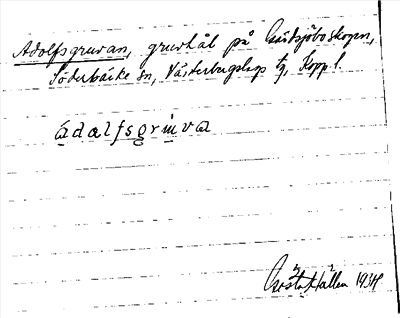 Adolfsgruvan, gruvhål på Gåssjöboskogen,
Söderbärke sn, Västerbergslags tg, Kopp. l.
ádalfsgrùva
Gösta Hallén 1934